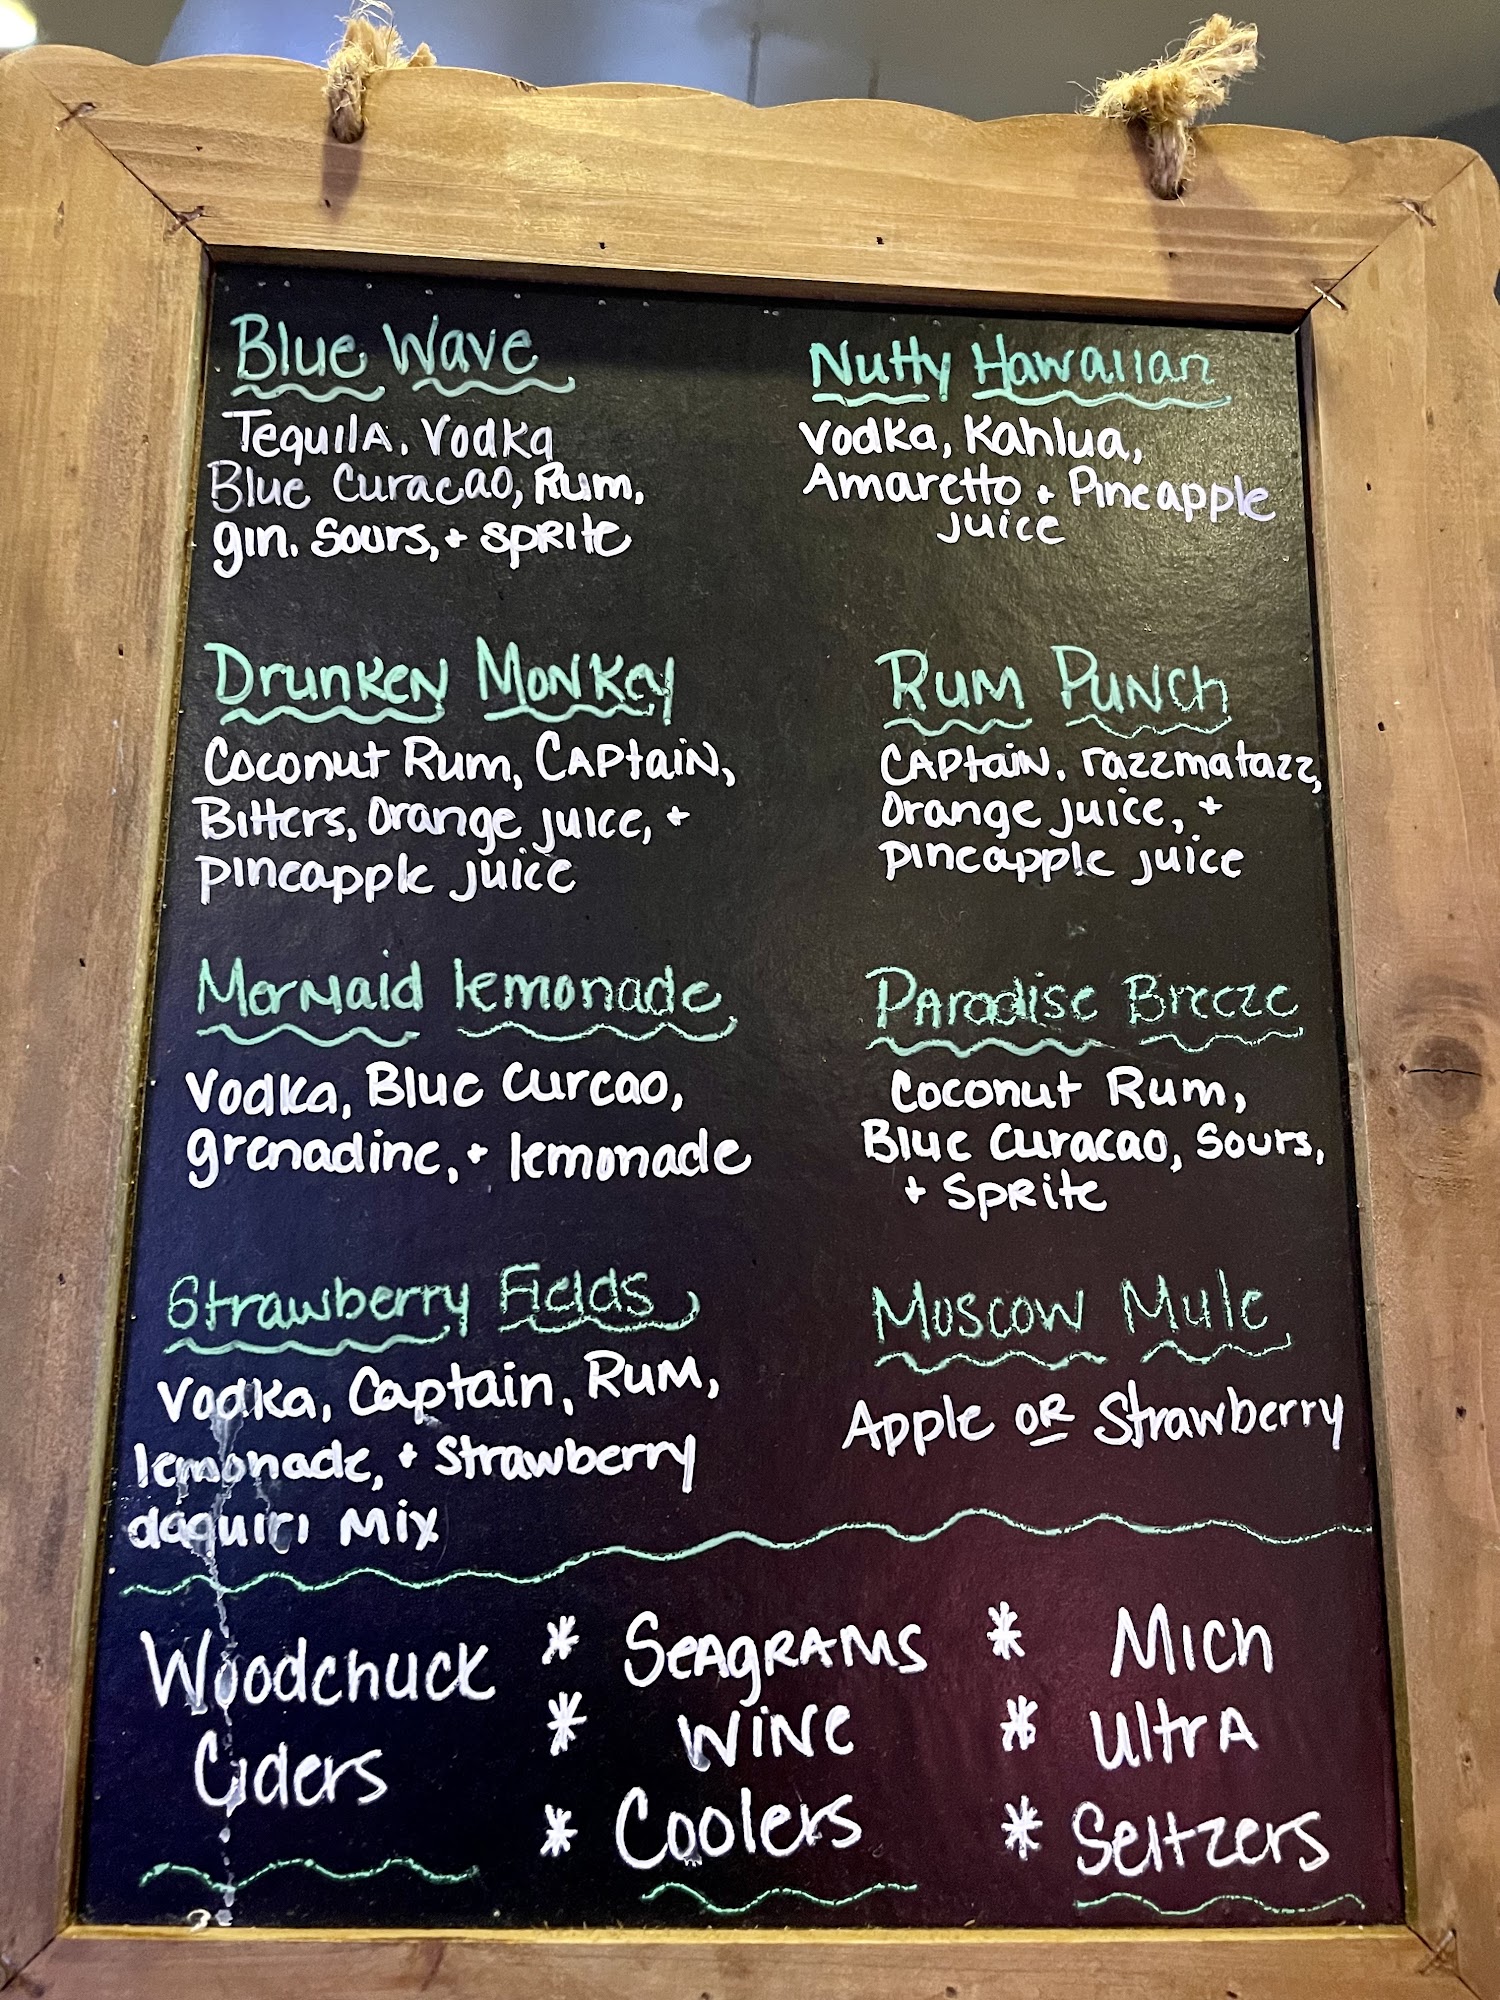 Blue Wave
Tequila, Vodka
Blue Curacao, Rum,
gin, Sours, + sprite
Nutty Hawaiian
Vodka, Kahlua,
Amaretto + Pineapple
juice
Drunken Monkey
Coconut Rum, Captain,
Bitters, Orange juice, +
pineapple juice
Rum Punch
Captain, razzmatazz,
Orange juice, +
pineapple juice
Mermaid lemonade
Vodka, Blue Curcao,
grenadine, + lemonade
Paradise Breeze
Coconut Rum,
Blue Curacao, Sours,
+ Sprite
Strawberry Fields
Vodka, Captain, Rum,
lemonade, + Strawberry
daquiri Mix
Moscow Mule
Apple or Strawberry
Woodchuck
Ciders
* Seagrams
* Wine
* Coolers
* Mich
* Ultra
* Seltzers